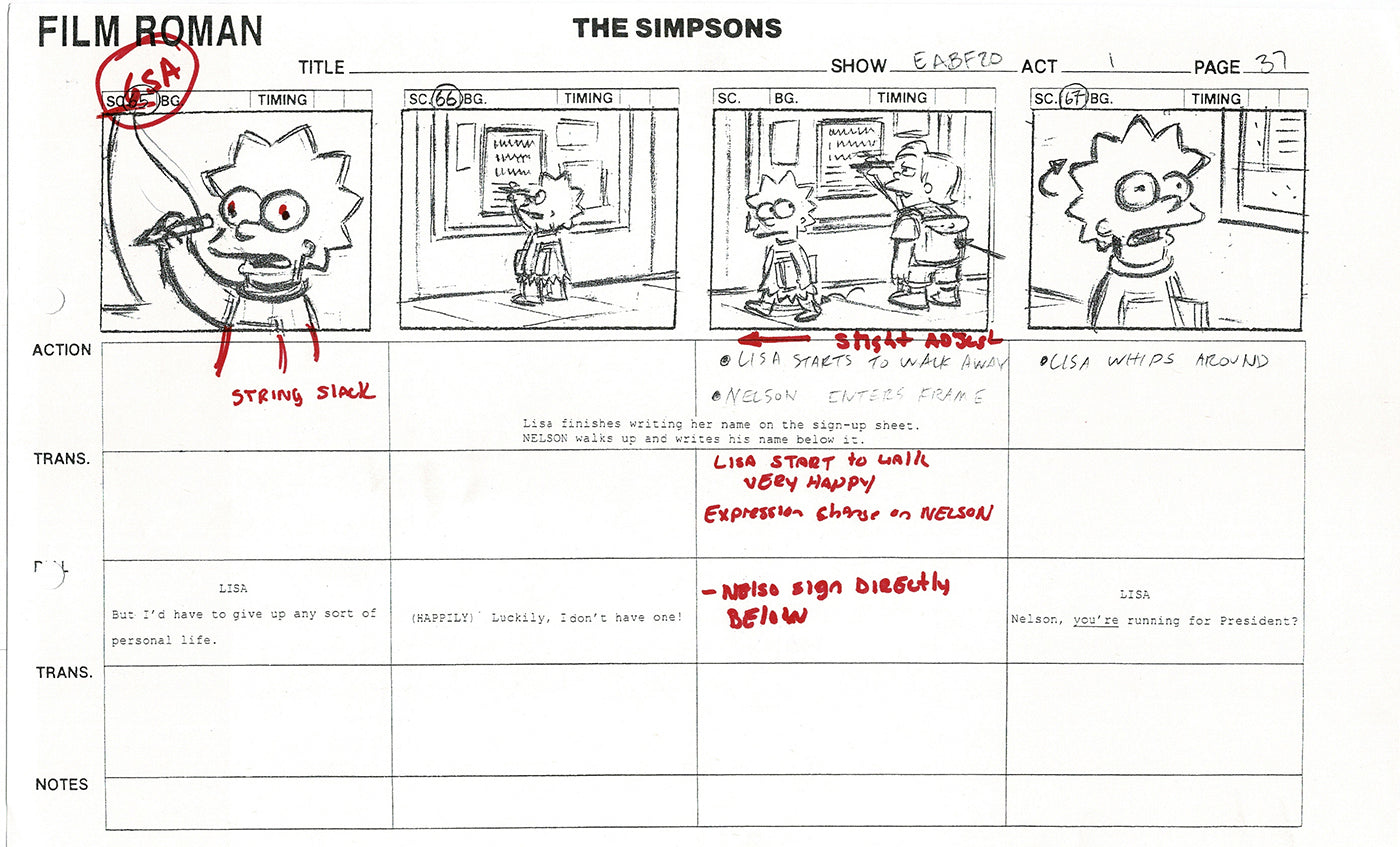 FILM ROMAN
THE SIMPSONS
TITLE
SHOW EABF20 ACT 1 PAGE 37
65A
SC. 65 BG. TIMING
SC. 66 BG. TIMING
SC. BG. TIMING
SC. 67 BG. TIMING
ACTION
STRING SLACK
Slight ADJUST
LISA STARTS TO WALK AWAY
NELSON ENTERS FRAME
LISA WHIPS AROUND
Lisa finishes writing her name on the sign-up sheet.
NELSON walks up and writes his name below it.
TRANS.
LISA START to WALK
VERY HAPPY
Expression Change on NELSON
LISA
But I'd have to give up any sort of
personal life.
(HAPPILY) Luckily, I don't have one!
- NELSO sign DIRECtly
BElOW
LISA
Nelson, you're running for President?
TRANS.
NOTES